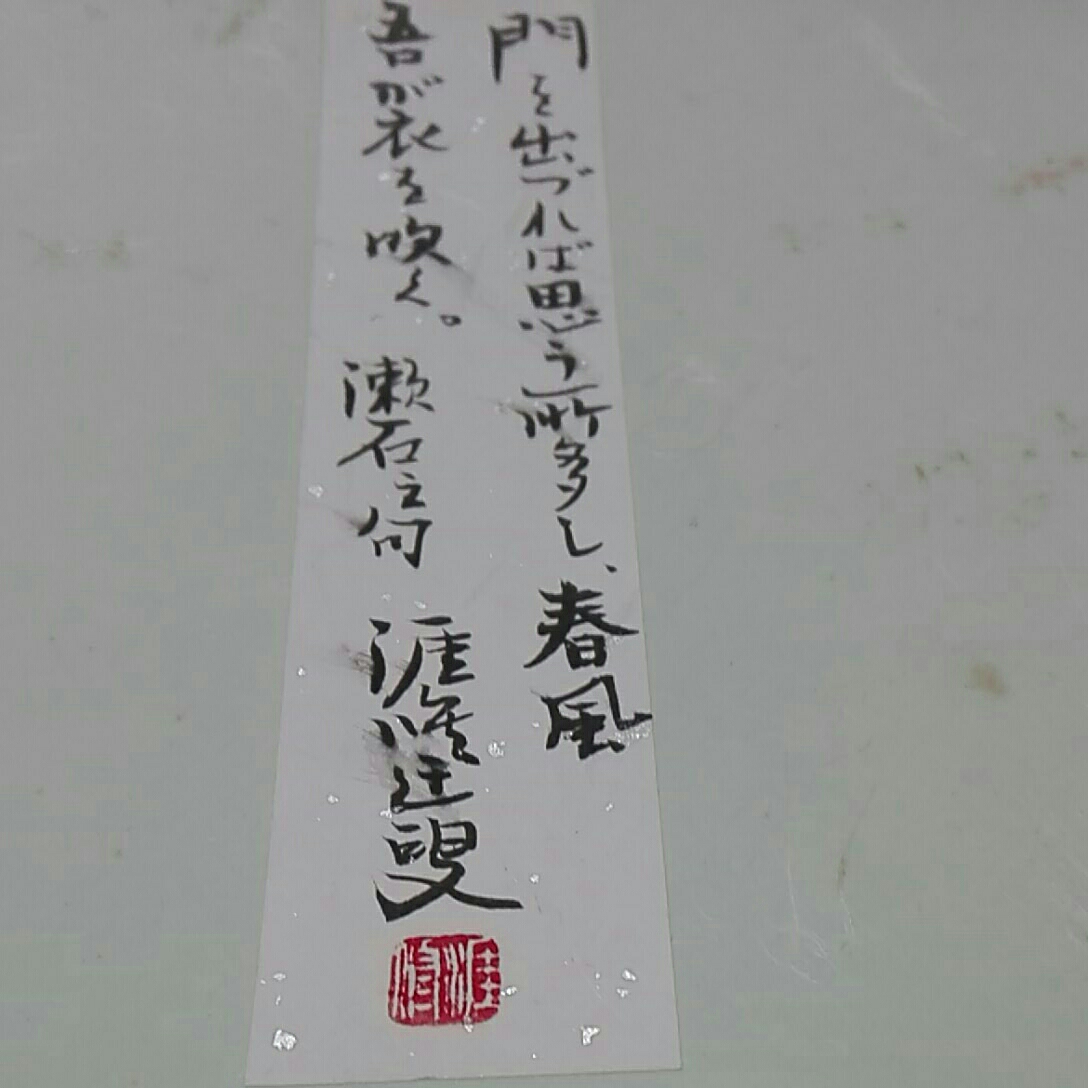 門を出づれば思う所多し、春風
吾が衣を吹く。 漱石之句 涯